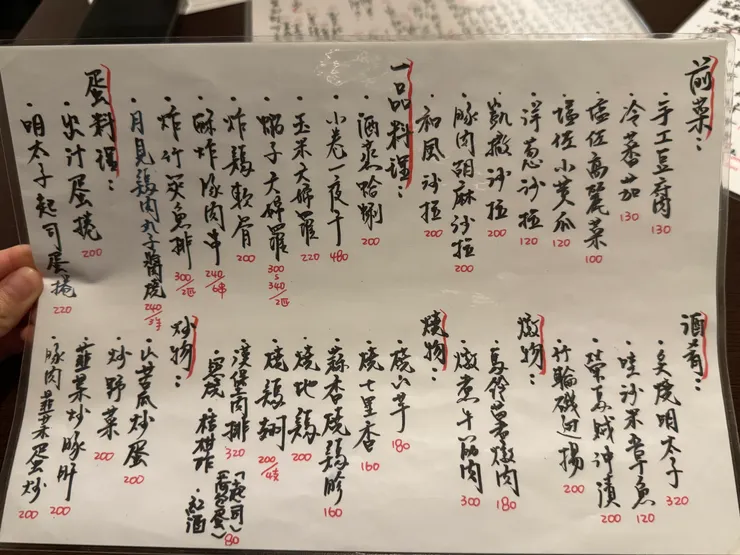 前菜：
・手工豆腐 130
・冷蕃茄 130
・塩伍高麗菜 100
・塩伍小黃瓜 120
・洋葱沙拉 120
・凱撒沙拉 200
・豚肉胡麻沙拉 200
・和風沙拉 200
一品料理：
・酒蒸蛤蜊 200
・小卷一夜干 480
・玉米天婦羅 220
・蝦子天婦羅 300 340/2匹
・炸鶏軟骨 200
・酥炸豚肉串 240/6串
・炸竹筴魚排 300/2匹
・月見鶏肉丸子醬燒 240
蛋料理：
・出汁蛋捲 200
・明太子起司蛋捲 220
酒肴：
・炙燒明太子 320
・哇沙米章魚 120
・螢烏賊沖漬 200
・竹輪磯辺揚 200
燉物：
・馬鈴薯燉肉 180
・燉煮牛筋肉 300
燒物：
・燒山芋 180
・燒七里香 160
・蒜香燒鶏胗 160
・燒地鶏 200
・燒鶏翅 200/4支
・漢堡肉排 320
「起司」
（荷包蛋） 80
・紅酒
炒物：
・山苦瓜炒蛋 200
・炒野菜 200
・韮菜炒豚肝 200
・豚肉韮菜蛋炒 200